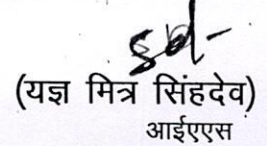 Sd-
(यज्ञ मित्र सिंहदेव)
आईएएस